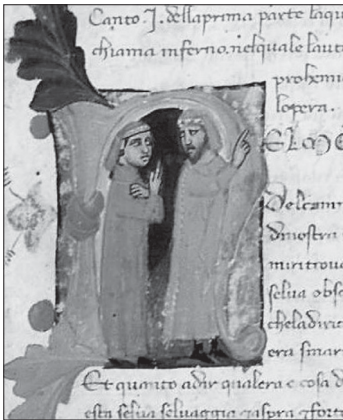 Canto. J. dellaprima parte laqu
chiama inferno. nelquale laut
prohemi
lopera.
EL
Delcam
dinostra
miritrova
selva obsc
cheladirit
era smar
Et quanto adir qualera e cosa d
esta selva selvaggia 7aspra 7forte